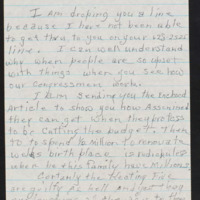 I Am droping you a line
because I have not been able
to get thru to you on your 225 2525
line. I can well understand
why when people are so upset
with things when you see how
our Congressmen work.
I am sending you the inclosed
Article to show you how
they can get when they profess
to be cutting the budget. Then
to spend ½ Million to renovate
birth place is rediculus
when he & his family have Millions.
Certanly the Heating Fix
are guilty as hell And just